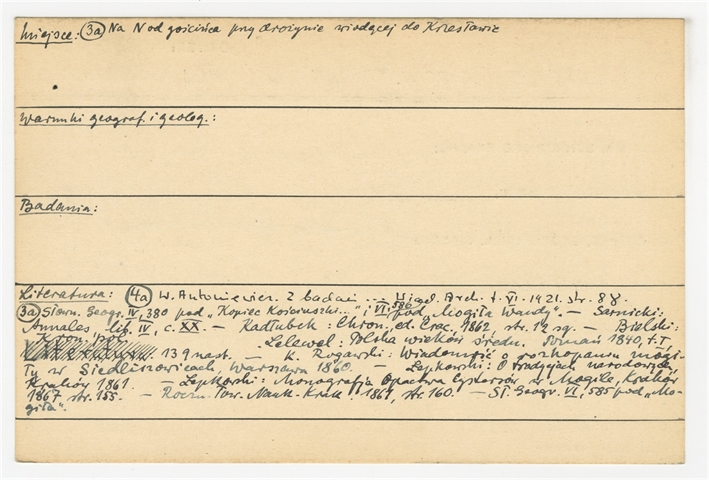 Miejsce: (3a) Na N od gościńca przy drożynie wiodącej do Krzesławic
Warunki geograf. i geolog.:
Badania:
Literatura: (4a) W. Antoniewicz. Z badań ... Wiad. Arch. t. VI. 1921. str. 88.
(3a) Słown. Geogr. IV, 380 pod „Kopiec Kościuszki..."; VI, 586 pod „Mogiła Wandy". — Sarnicki:
Annales, lib. IV, c. XX. — Kadłubek: Chron. ed. Crac. 1862, str. 12 sq. — Bielski:
Kron. Lelewel: Polska wieków średn. Poznań 1840, t. I,
139 nast. — K. Rogawski: Wiadomość o rozkopaniu mogi-
ły w Siedliszowicach, Warszawa 1860. — Łepkowski: O tradycjach narodowych,
Kraków 1861. — Łepkowski: Monografja Opactwa Cystersów w Mogile, Kraków
1867 str. 155. — Roczn. Tow. Nauk. Krak. 1861, str. 160. — Sł. Geogr. VI, 585 pod „Mo-
giła".